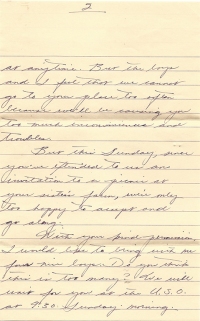 2
at anytime. But the boys
and I felt that we cannot
go to your place too often
because we'll be causing you
too much inconvenience and
troubles.
But this Sunday, since
you've extended to us an
invitation to a picnic at
your sister's farm, we're only
too happy to accept and
go along.
With your kind permission,
I would like to bring with me
four nice boys. Do you think
this is too many? We will
wait for you at the U.S.O.
at 9:30 Sunday morning.